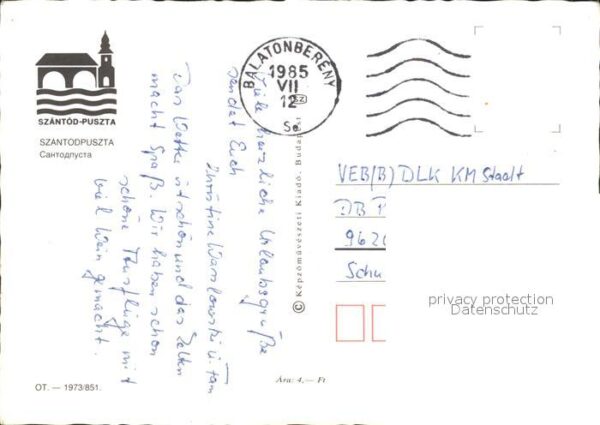 SZÁNTÓD-PUSZTA
SZÁNTÓDPUSZTA
Сантодпуста
BALATONBERÉNY
1985
VII
12
Viele herzliche Urlaubsgrüße
sendet Euch
Christine u. Fam
Das Wetter ist schön und das Zelten
macht Spaß. Wir haben schon
schöne Ausflüge mit
viel Wein gemacht.
© Képzőművészeti Kiadó, Budapest
VEB(B) DLK KM Stadt
DB
962
Schu
privacy protection
Datenschutz
OT. — 1973/851.
Ára: 4,— Ft